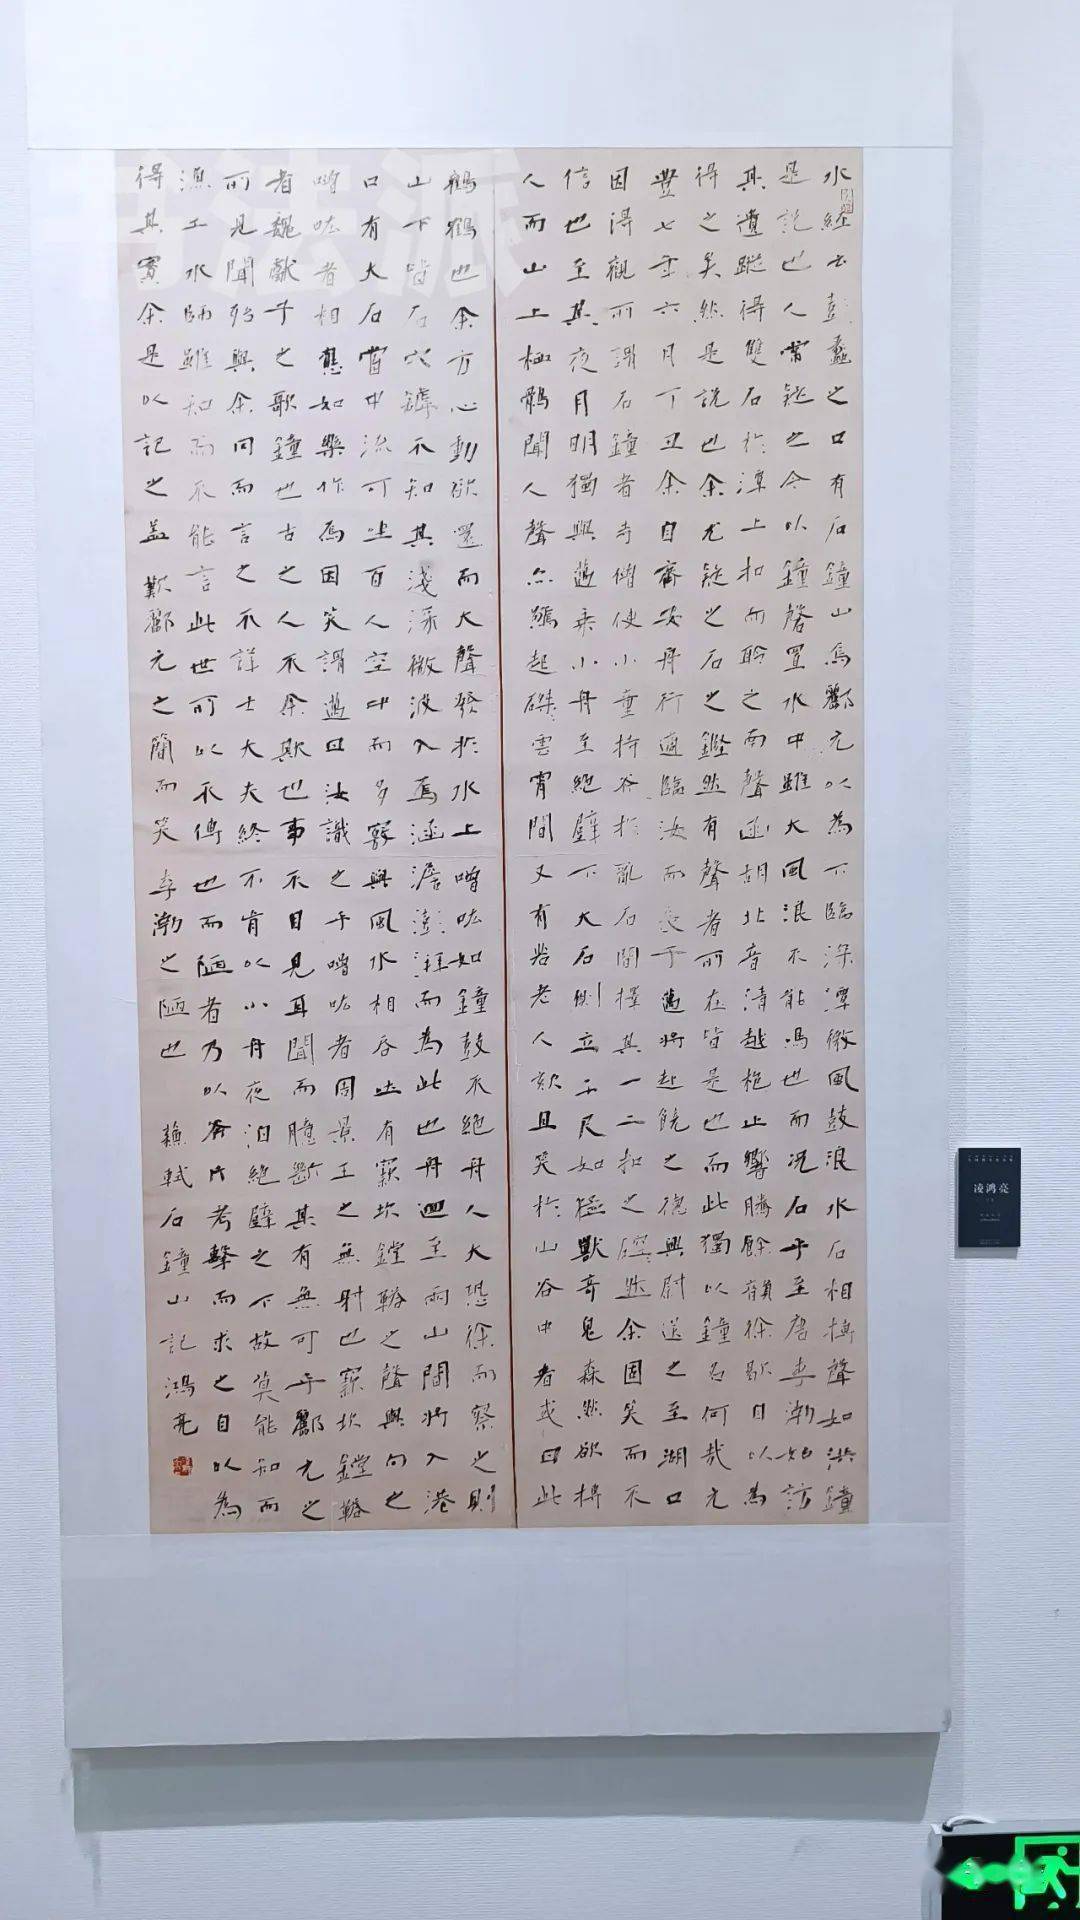 水經云彭蠡之口有石鐘山焉酈元以為下臨深潭微風鼓浪水石相搏聲如洪鐘
是說也人常疑之今以鐘磬置水中雖大風浪不能鳴也而況石乎至唐李渤始訪
其遺蹤得雙石於潭上扣而聆之南聲函胡北音清越枹止響騰餘韻徐歇自以為
得之矣然是說也余尤疑之石之鏗然有聲者所在皆是也而此獨以鐘名何哉元
豐七年六月丁丑余自齊安舟行適臨汝而長子邁將赴饒之德興尉送之至湖口
因得觀所謂石鐘者寺僧使小童持斧於亂石間擇其一二扣之硿然余固笑而不
信也至其夜月明獨與邁乘小舟至絕壁下大石側立千尺如猛獸奇鬼森然欲搏
人而山上栖鶻聞人聲亦驚起磔雲霄間又有若老人欬且笑於山谷中者或曰此
鸛鶴也余方心動欲還而大聲發於水上噌吰如鐘鼓不絕舟人大恐徐而察之則
山下皆石穴罅不知其淺深微波入焉涵澹澎湃而為此也舟迴至兩山間將入港
口有大石當中流可坐百人空中而多竅與風水相吞吐有窾坎鏜鞳之聲與向之
噌吰者相應如樂作焉因笑謂邁曰汝識之乎噌吰者周景王之無射也窾坎鏜鞳
者魏獻子之歌鐘也古之人不余欺也事不目見耳聞而臆斷其有無可乎酈元之
所見聞殆與余同而言之不詳士大夫終不肯以小舟夜泊絕壁之下故莫能知而
漁工水師雖知而不能言此世所以不傳也而陋者乃以斧斤考擊而求之自以為
得其實余是以記之蓋歎酈元之簡而笑李渤之陋也 蘇軾石鐘山記鴻亮
凌鸿亮
书法派